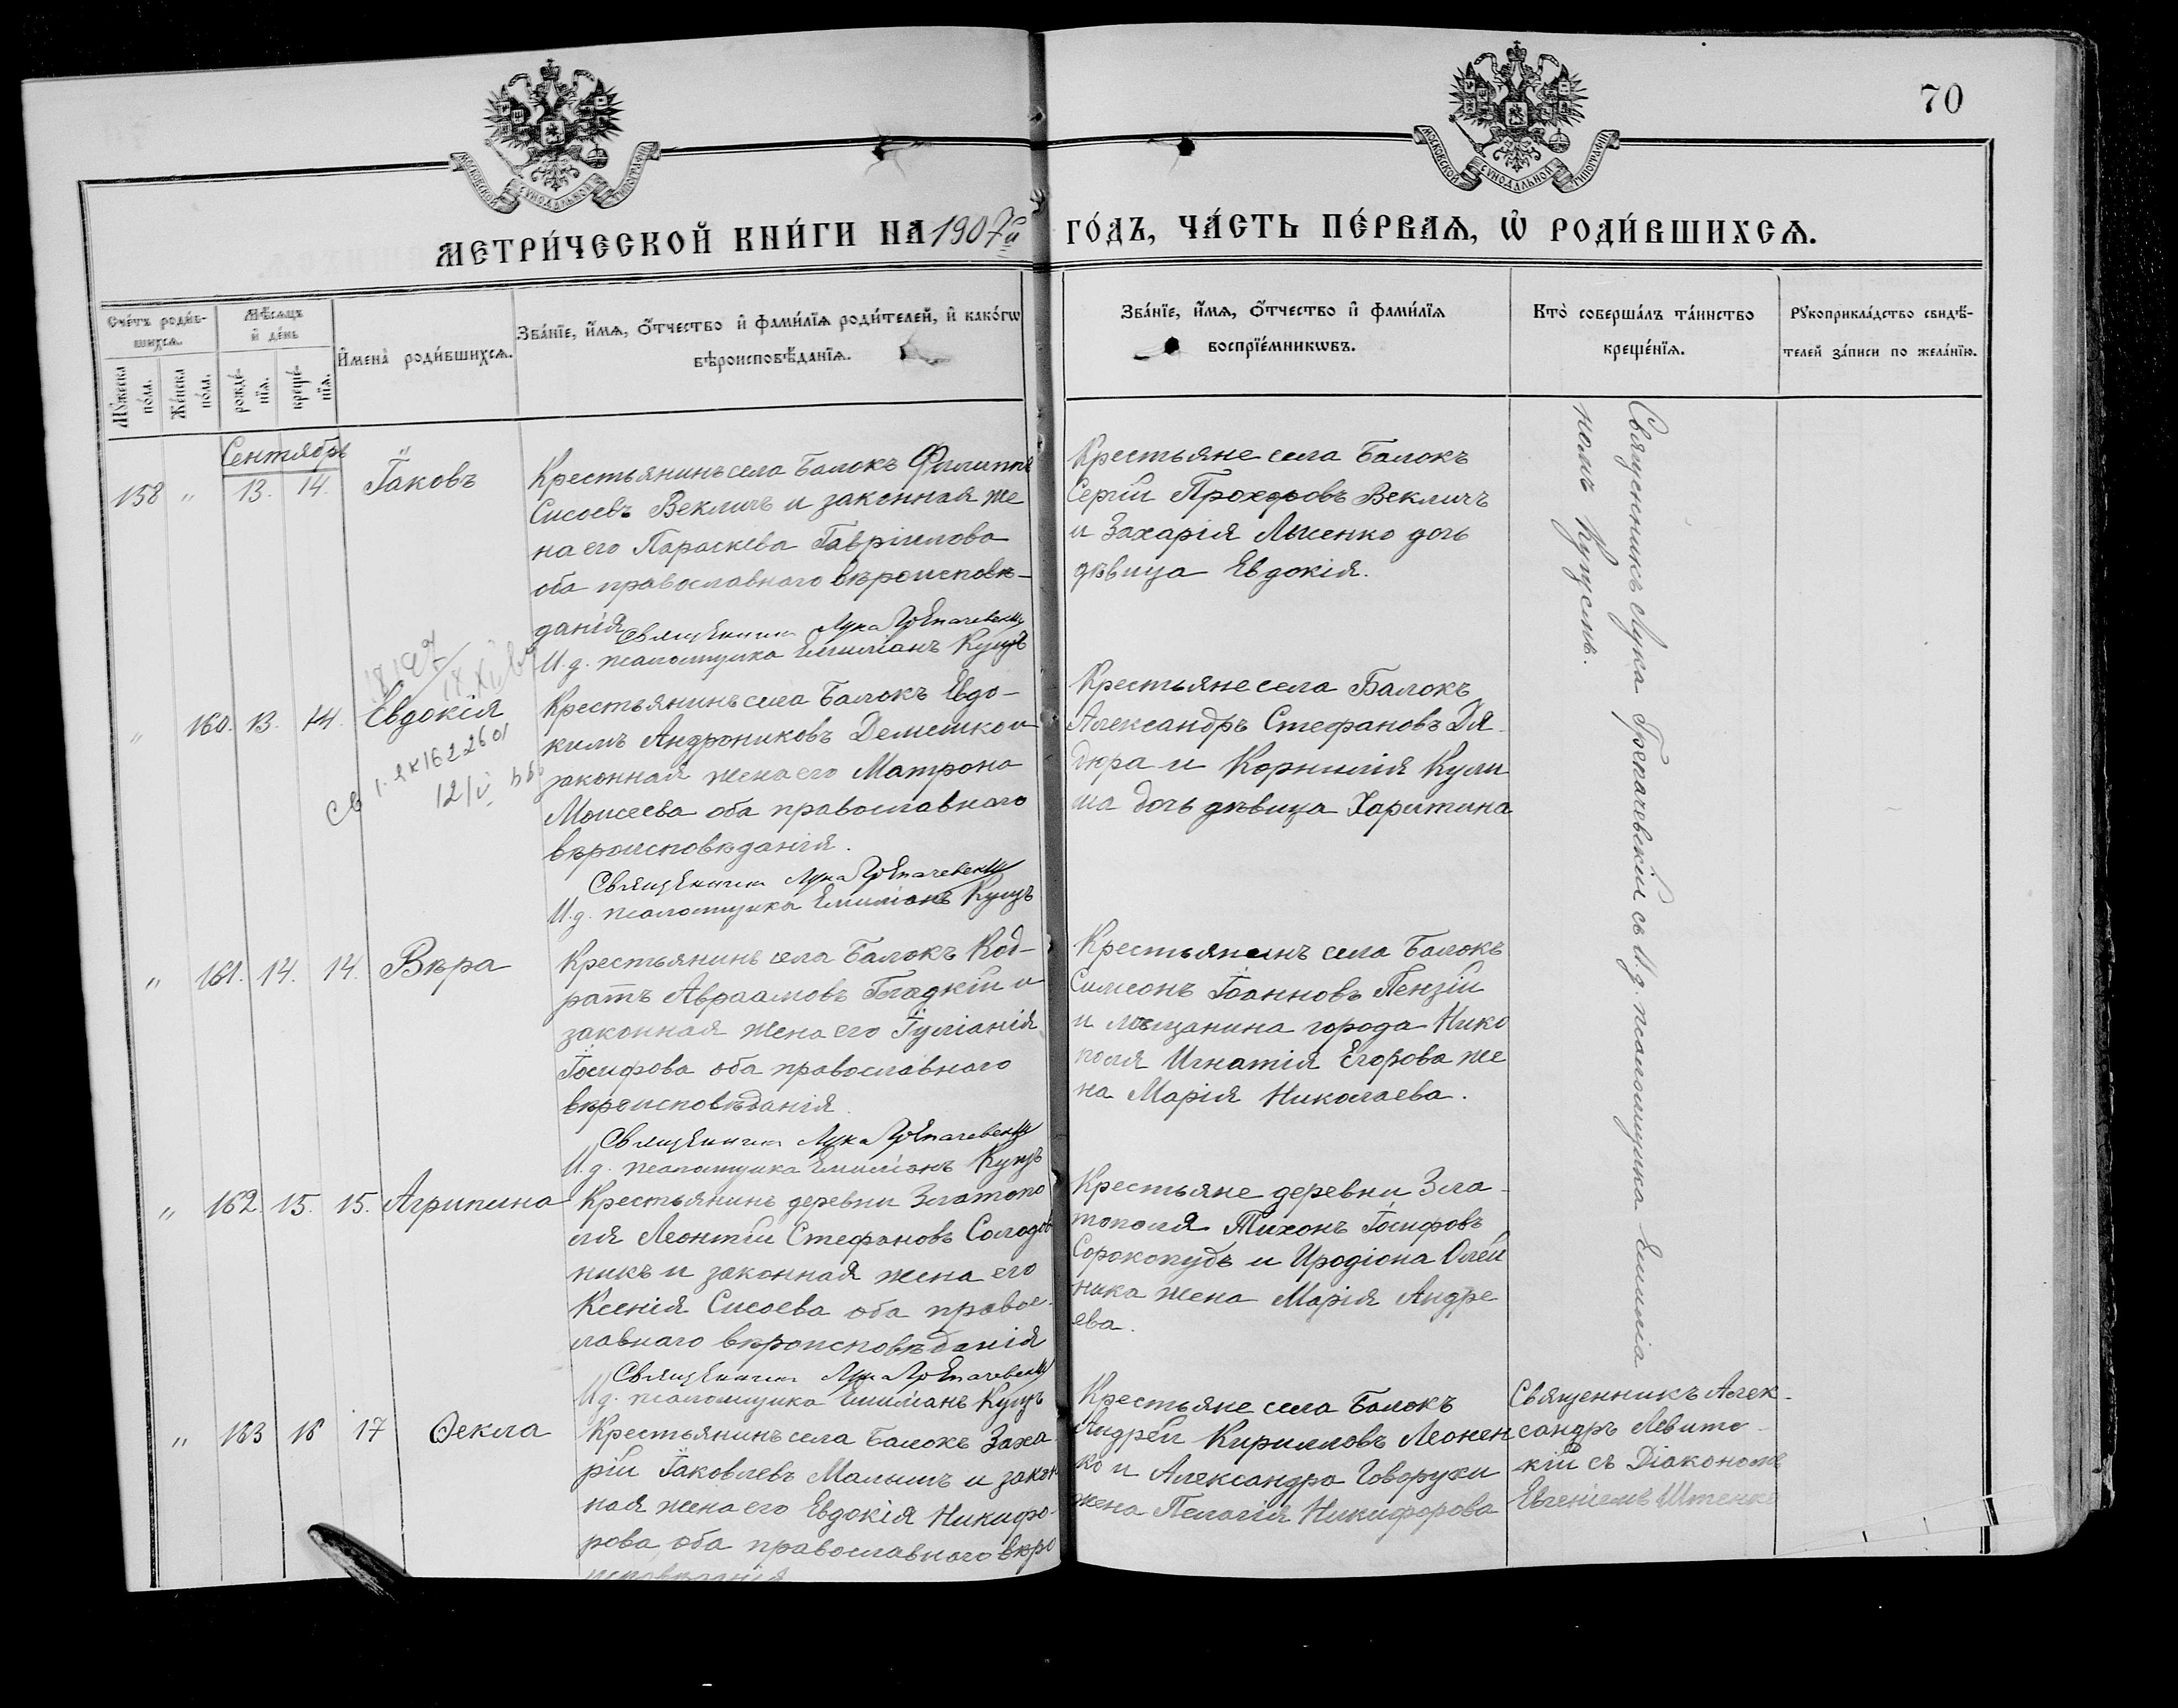 70
МОСКОВСКОЙ СУНОДАЛЬНОЙ ТИПОГРАФІИ
МОСКОВСКОЙ СУНОДАЛЬНОЙ ТИПОГРАФІИ
МЕТРИ́ЧЕСКОЙ КНИ́ГИ НА 1907й ГО́ДЪ, ЧА́СТЬ ПЕ́РВАѦ, Ѡ РОДИ́ВШИХСѦ.
Сче́тъ роди́в-
шихсѧ.
Мꙋ́жеска по́ла.
Же́нска по́ла.
Мѣ́сѧцъ и де́нь
рожде́-
нїѧ.
креще́-
нїѧ.
И҆мена̀ роди́вшихсѧ.
Зва́нїе, и҆́мѧ, ѻ҆́тчество и҆ фами́лїѧ роди́телей, и҆ како́гѡ
вѣроисповѣ́данїѧ.
Зва́нїе, и҆́мѧ, ѻ҆́тчество и҆ фами́лїѧ
воспрїе́мникѡвъ.
Кто̀ соверша́лъ та́инство
креще́нїѧ.
Рꙋкоприкла́дство свидѣ́-
телей за́писи по жела́нїю.
Сентябрь
158 " 13. 14. Іаковъ
Крестьянинъ села Балокъ Филиппъ
Сисоевъ Векличъ и законная же
на его Параскева Гавріилова
оба православнаго вѣроисповѣ-
данія
Священникъ Лука Грепачевскій
И.д. псаломщика Емиліанъ Куцъ
Крестьяне села Балокъ
Сергій Прохоровъ Векличъ
и Захарія Лысенко дочь
дѣвица Евдокія.
Священникъ Лука Грепачевскій съ И.д. псаломщика Емиліа
номъ Куцемъ.
" 160. 13. 14. Евдокія
12/V
Крестьянинъ села Балокъ Евдо-
кимъ Андрониковъ Демешко и
законная жена его Матрона
Моисеева оба православнаго
вѣроисповѣданія.
Священникъ Лука Грепачевскій
И.д. псаломщика Емиліанъ Куцъ
Крестьяне села Балокъ
Александръ Стефановъ Дя-
дюра и Корнилія Кули
ша дочь дѣвица Харитина
" 161. 14. 14. Вѣра
Крестьянинъ села Балокъ Код-
ратъ Авраамовъ Гладкій и
законная жена его Іуліанія
Іосифова оба православнаго
вѣроисповѣданія.
Священникъ Лука Грепачевскій
И.д. псаломщика Емиліанъ Куцъ
Крестьянинъ села Балокъ
Симеонъ Іоанновъ Пензій
и мѣщанина города Нико
поля Игнатія Егорова же
на Марія Николаева.
" 162. 15. 15. Агрипина
Крестьянинъ деревни Златопо
ля Леонтій Стефановъ Солодов
никъ и законная жена его
Ксенія Сисоева оба право-
славнаго вѣроисповѣданія
Священникъ Лука Грепачевскій
И.д. псаломщика Емиліанъ Куцъ
Крестьяне деревни Зла-
тополя Тихонъ Іосифовъ
Сорокопудъ и Иродіона Олей
ника жена Марія Андре
ева.
" 163 16 17 Ѳекла
Крестьянинъ села Балокъ Заха-
рій Іаковлевъ Малышъ и закон
ная жена его Евдокія Никифо-
рова, оба православнаго вѣро
исповѣданія
Крестьяне села Балокъ
Андрей Кирилловъ Леонен
ко и Александра Говорухи
жена Пелагія Никифорова
Священникъ Алек-
сандръ Левитс-
кій съ Діакономъ
Евгеніемъ Штенко